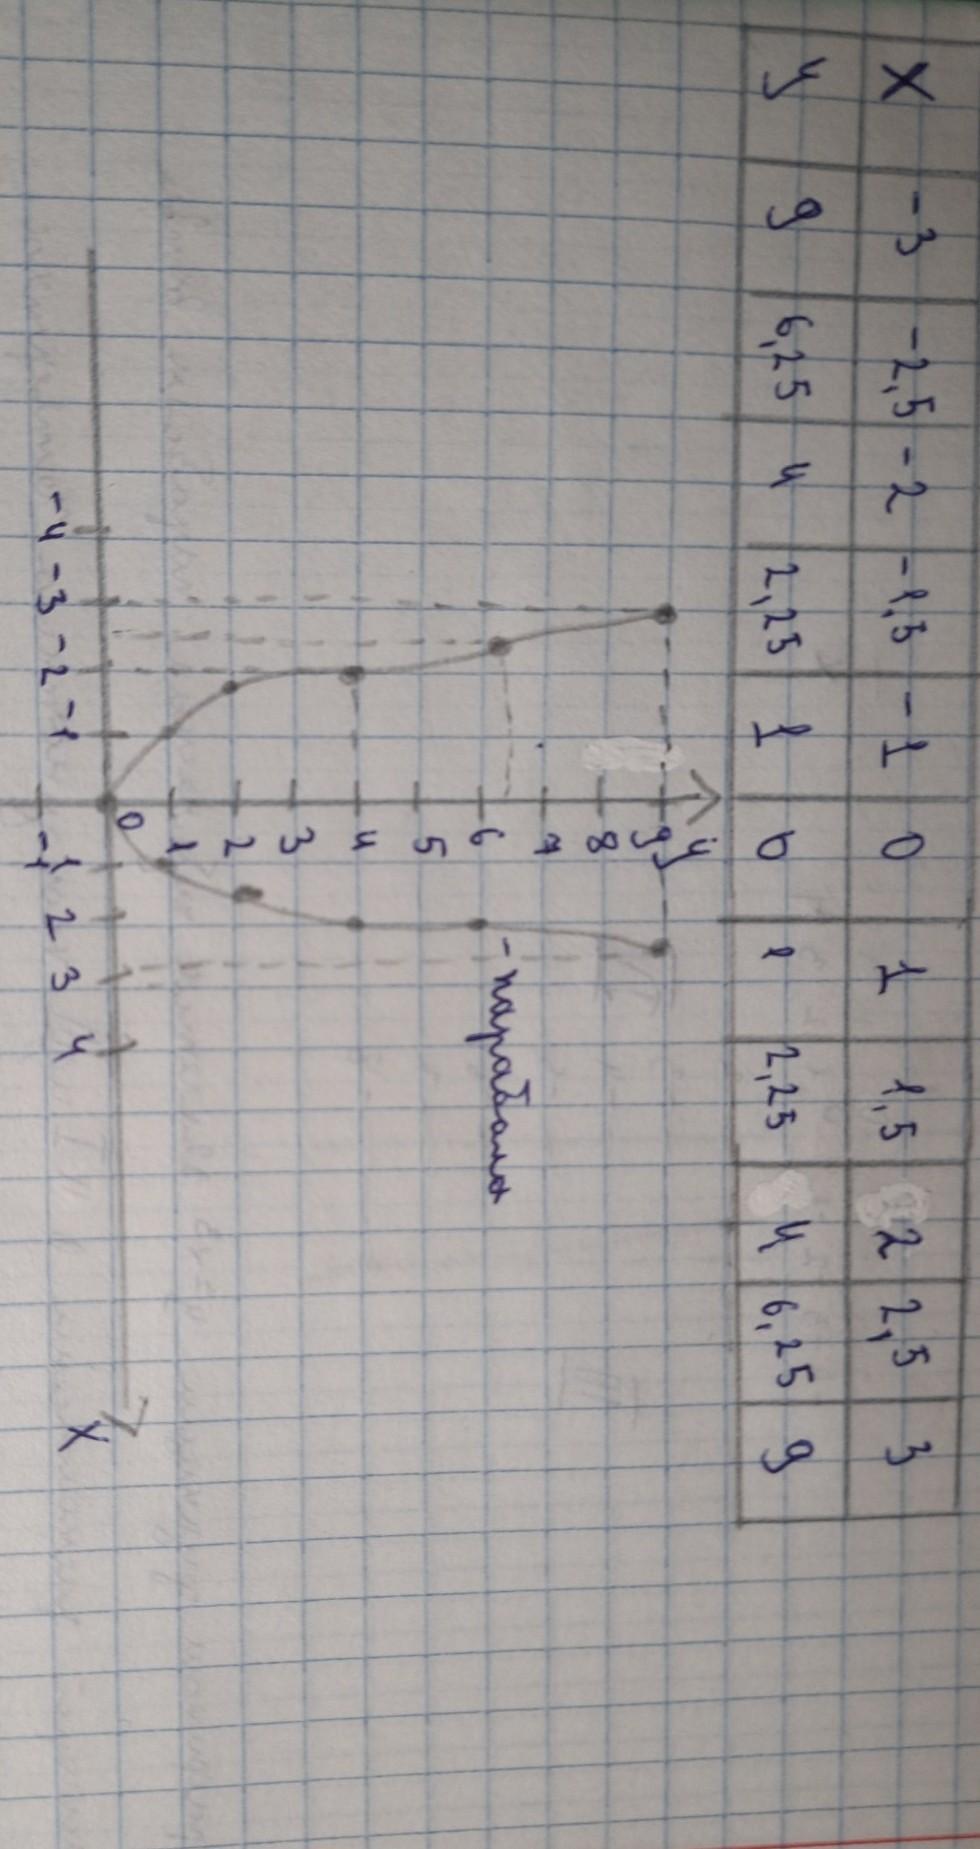 x -3 -2,5 -2 -1,5 -1 0 1 1,5 2 2,5 3
y 9 6,25 4 2,25 1 0 1 2,25 4 6,25 9
y
9
8
7
6
- парабола
5
4
3
2
1
0
-4 -3 -2 -1 1 2 3 4 x
-1